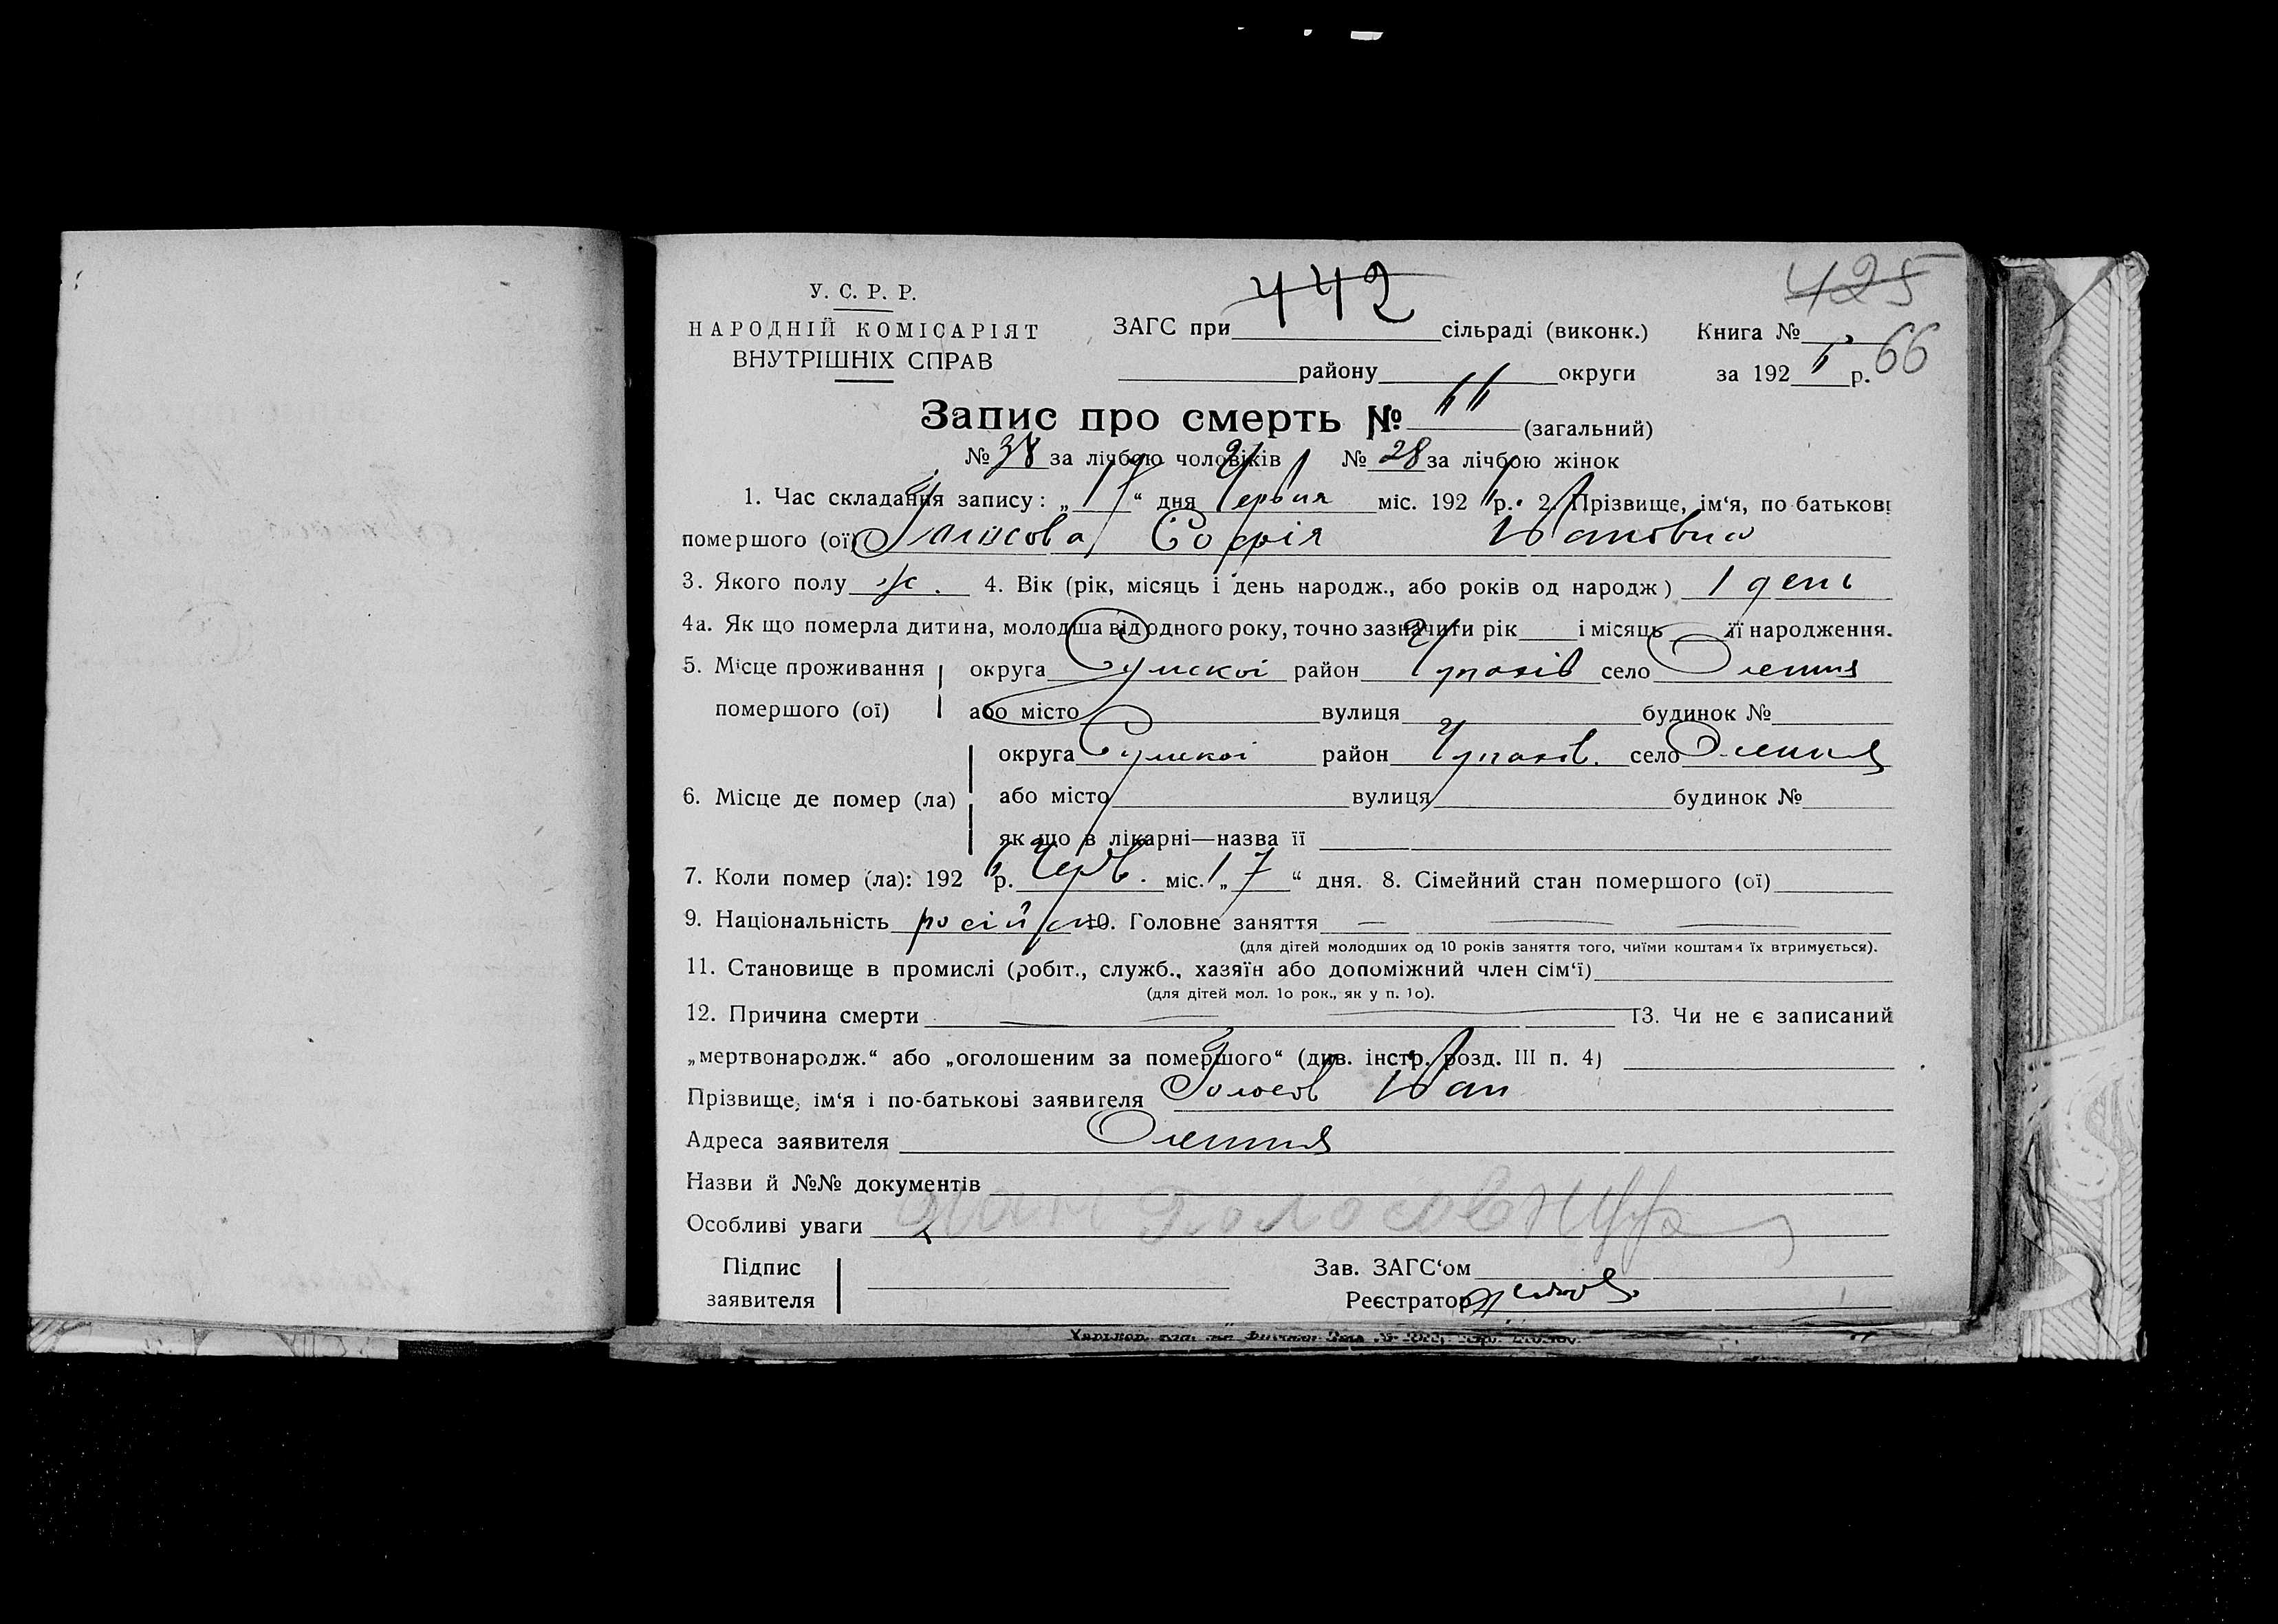 442
425
У. С. Р. Р.
НАРОДНІЙ КОМІСАРІЯТ
ВНУТРІШНІХ СПРАВ
ЗАГС при сільраді (виконк.) Книга №
району округи за 192 р. 66
Запис про смерть № 66 (загальний)
№ 38 за лічбою чоловіків № 28 за лічбою жінок
1. Час складання запису: „17“ дня Червня міс. 192 р. 2. Прізвище, ім‘я, по батькові
помершого (ої) Голосова Софія Ивановна
3. Якого полу ж. 4. Вік (рік, місяць і день народж., або років од народж) 1 день
4а. Як що померла дитина, молодша від одного року, точно зазначити рік і місяць її народження.
5. Місце проживання округа Сумскої район Чупахів село Олешня
помершого (ої) або місто вулиця будинок №
округа Сумскої район Чупахів. село Олешня
6. Місце де помер (ла) або місто вулиця будинок №
як що в лікарні—назва її
7. Коли помер (ла): 192 р. Черв. міс. „17“ дня. 8. Сімейний стан помершого (ої)
9. Національність російск 10. Головне заняття
(для дітей молодших од 10 років заняття того, чиїми коштами їх втримується).
11. Становище в промислі (робіт., служб., хазяїн або допоміжний член сім‘ї)
(для дітей мол. 1о рок., як у п. 1о).
12. Причина смерти 13. Чи не є записаний
„мертвонародж.“ або „оголошеним за помершого“ (див. інстр. розд. III п. 4)
Прізвище, ім‘я і по-батькові заявителя Голосов Иван
Адреса заявителя Олешня
Назви й №№ документів
Особливі уваги
Підпис Зав. ЗАГС‘ом
заявителя Реєстратор